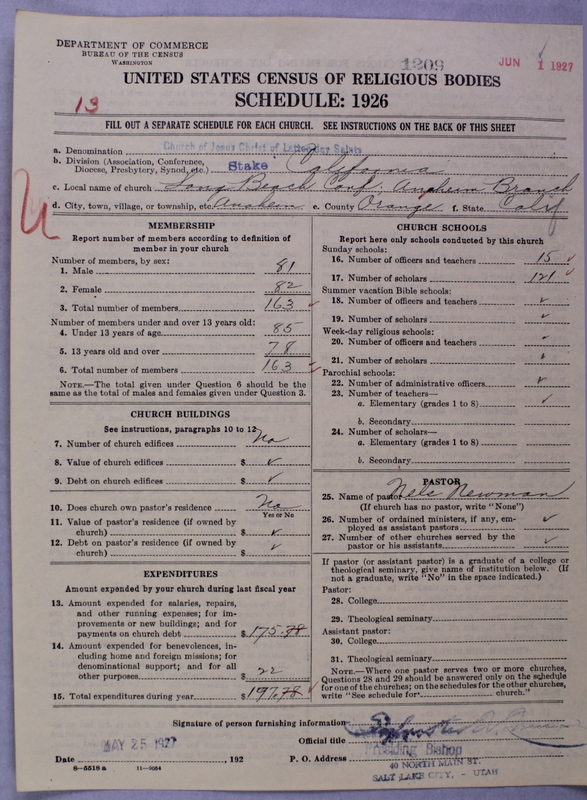 DEPARTMENT OF COMMERCE
BUREAU OF THE CENSUS
WASHINGTON
1209
JUN 1 1927
UNITED STATES CENSUS OF RELIGIOUS BODIES
13
SCHEDULE: 1926
FILL OUT A SEPARATE SCHEDULE FOR EACH CHURCH. SEE INSTRUCTIONS ON THE BACK OF THIS SHEET
a. Denomination Church of Jesus Christ of Latter-day Saints
b. Division (Association, Conference, Diocese, Presbytery, Synod, etc.) Stake California
c. Local name of church Long Beach Conf. Anaheim Branch
d. City, town, village, or township, etc. Anaheim e. County Orange f. State Calif
MEMBERSHIP
Report number of members according to definition of member in your church
Number of members, by sex:
1. Male 81
2. Female 82
3. Total number of members 163
Number of members under and over 13 years old:
4. Under 13 years of age 85
5. 13 years old and over 78
6. Total number of members 163
NOTE.—The total given under Question 6 should be the same as the total of males and females given under Question 3.
CHURCH BUILDINGS
See instructions, paragraphs 10 to 12
7. Number of church edifices No
8. Value of church edifices $ ✓
9. Debt on church edifices $ ✓
10. Does church own pastor's residence? No
Yes or No
11. Value of pastor's residence (if owned by church) $ ✓
12. Debt on pastor's residence (if owned by church) $ ✓
EXPENDITURES
Amount expended by your church during last fiscal year
13. Amount expended for salaries, repairs, and other running expenses; for improvements or new buildings; and for payments on church debt $ 175.78
14. Amount expended for benevolences, including home and foreign missions; for denominational support; and for all other purposes $ 22
15. Total expenditures during year $ 197.78
CHURCH SCHOOLS
Report here only schools conducted by this church
Sunday schools:
16. Number of officers and teachers 15
17. Number of scholars 121
Summer vacation Bible schools:
18. Number of officers and teachers ✓
19. Number of scholars ✓
Week-day religious schools:
20. Number of officers and teachers
21. Number of scholars
Parochial schools:
22. Number of administrative officers ✓
23. Number of teachers—
a. Elementary (grades 1 to 8) ✓
b. Secondary
24. Number of scholars—
a. Elementary (grades 1 to 8)
b. Secondary
PASTOR
25. Name of pastor Nels Newman
(If church has no pastor, write "None")
26. Number of ordained ministers, if any, employed as assistant pastors ✓
27. Number of other churches served by the pastor or his assistants ✓
If pastor (or assistant pastor) is a graduate of a college or theological seminary, give name of institution below. (If not a graduate, write "No" in the space indicated.)
Pastor:
28. College
29. Theological seminary
Assistant pastor:
30. College
31. Theological seminary
NOTE.—Where one pastor serves two or more churches, Questions 28 and 29 should be answered only on the schedule for one of the churches; on the schedules for the other churches, write "See schedule for church."
Signature of person furnishing information
Official title Presiding Bishop
MAY 25 1927
Date , 192 P. O. Address 40 NORTH MAIN ST.
SALT LAKE CITY, - UTAH
8—5518 a 11—9064